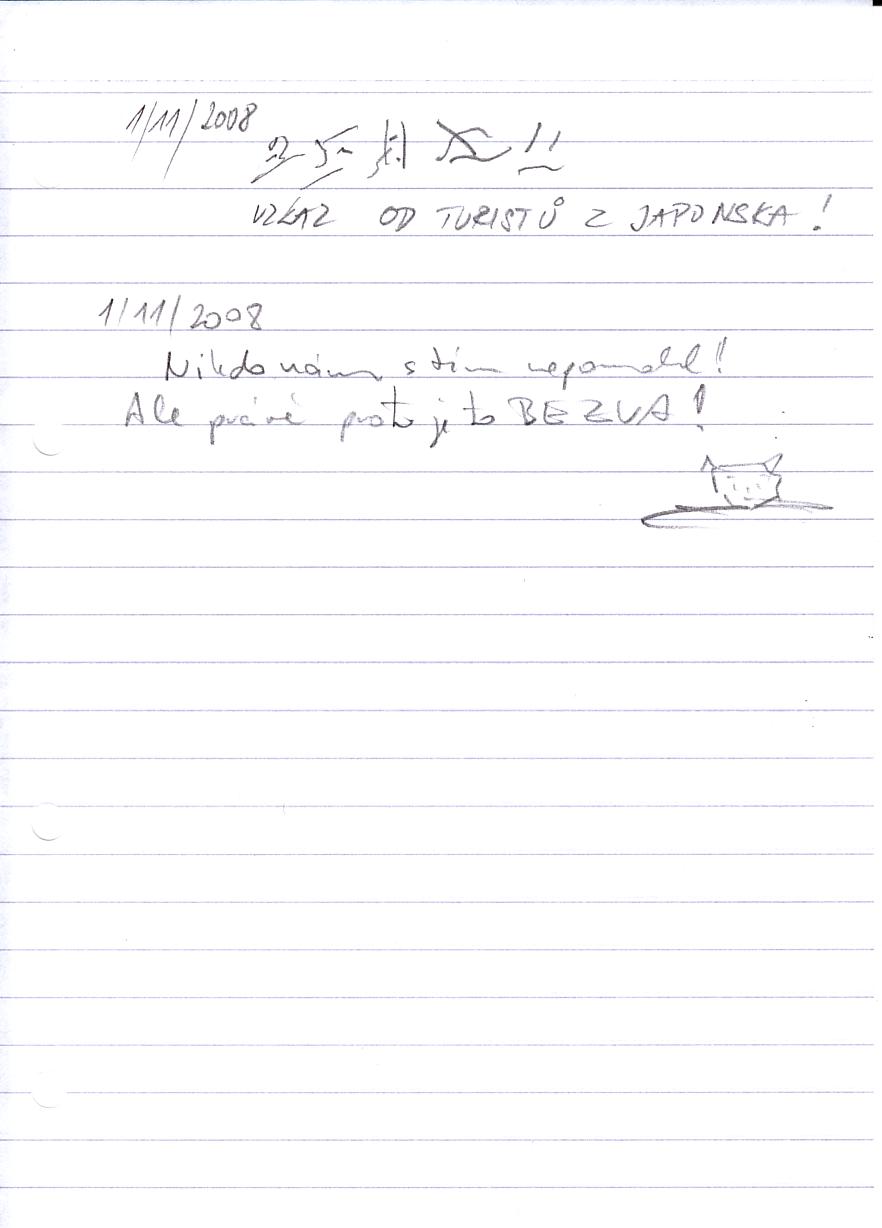 1/11/2008
VZKAZ OD TURISTŮ Z JAPONSKA!
1/11/2008
Nikdo nám s tím nepomohl!
Ale právě proto je to BEZVA!